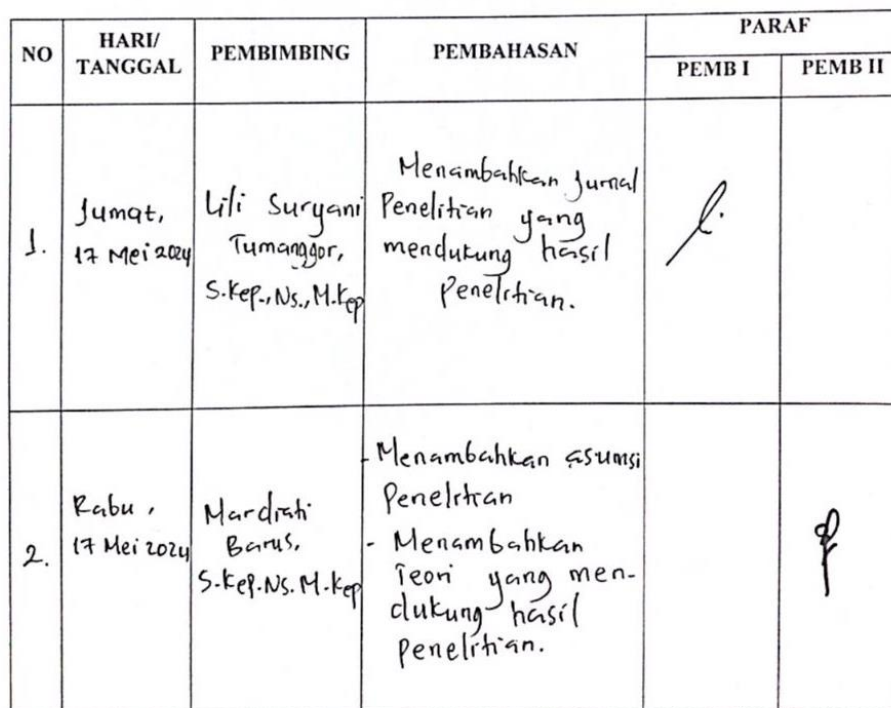 NO
HARI/
TANGGAL
PEMBIMBING
PEMBAHASAN
PARAF
PEMB I
PEMB II
1.
Jumat,
17 Mei 2024
Lili Suryani
Tumanggor,
S.Kep., Ns., M.Kep
Menambahkan Jurnal
Penelitian yang
mendukung hasil
Penelitian.
2.
Rabu,
17 Mei 2024
Mardiati
Barus,
S.Kep.Ns.M.Kep
- Menambahkan asumsi
Penelitian
- Menambahkan
Teori yang men-
dukung hasil
penelitian.